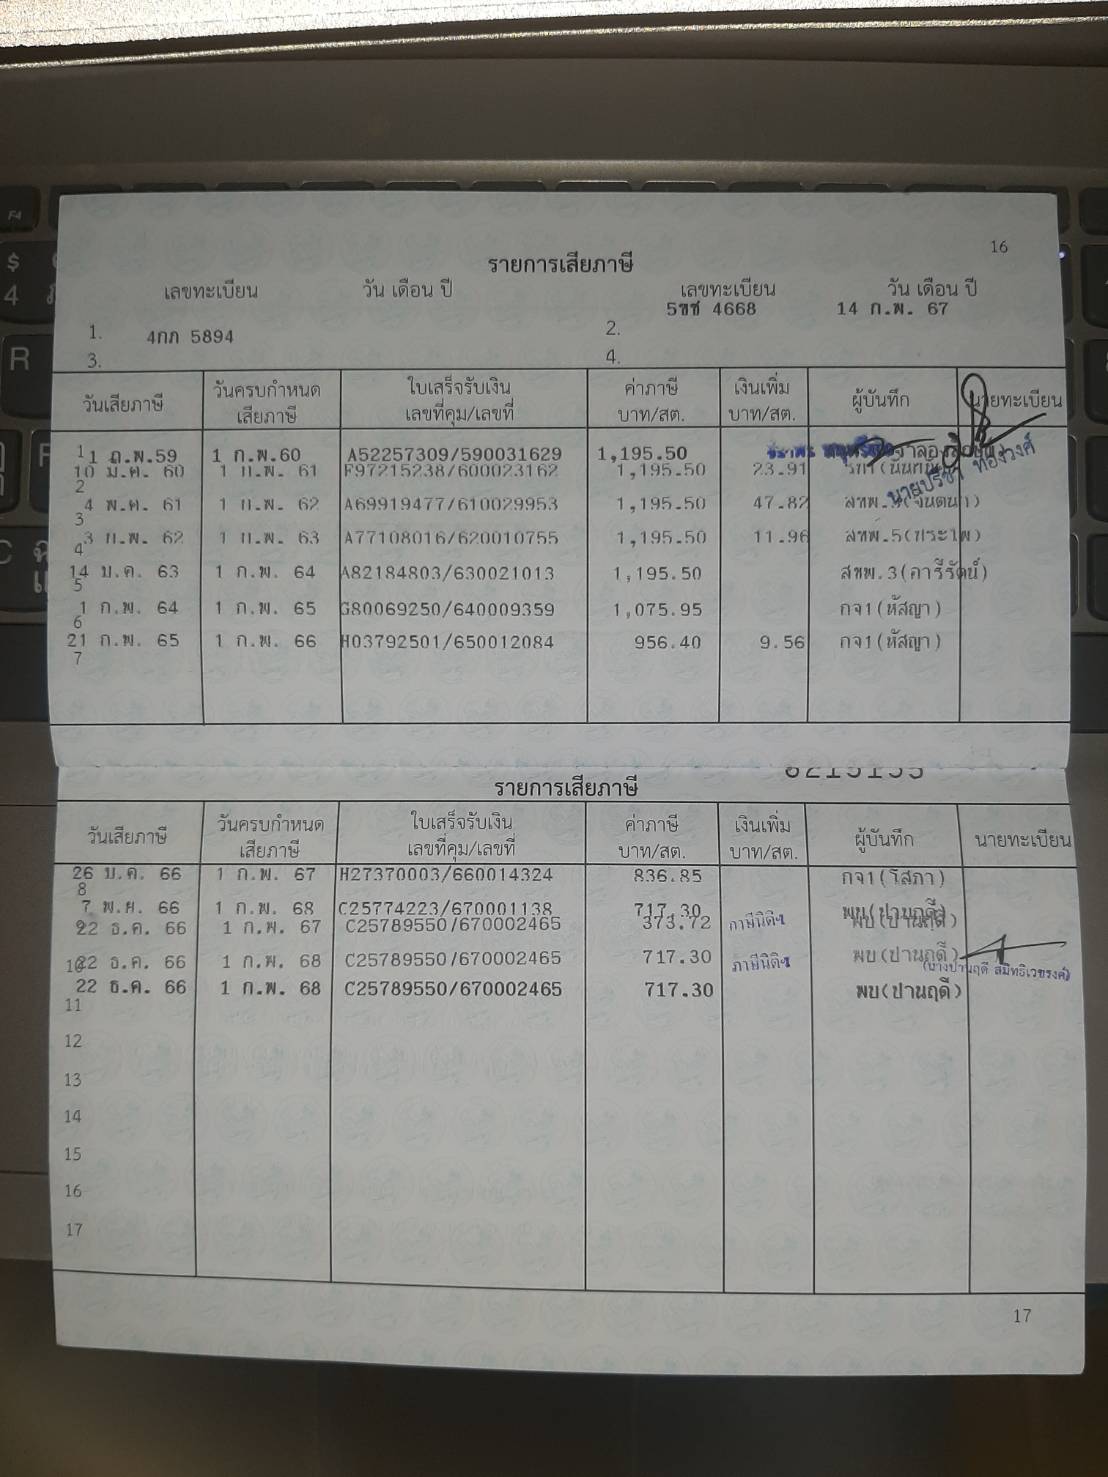 16
รายการเสียภาษี
เลขทะเบียน วัน เดือน ปี เลขทะเบียน วัน เดือน ปี
1. 4กภ 5894 2. 5ขช 4668 14 ก.พ. 67
3. 4.
วันเสียภาษี วันครบกำหนดเสียภาษี ใบเสร็จรับเงิน เลขที่คุม/เลขที่ ค่าภาษี บาท/สต. เงินเพิ่ม บาท/สต. ผู้บันทึก นายทะเบียน
1 1 ก.พ.59 1 ก.พ.60 A52257309/590031629 1,195.50
2 10 ม.ค. 60 1 ก.พ. 61 F97215238/600023162 1,195.50 23.91
นายปรีชา ทองวงศ์
3 4 พ.ค. 61 1 ก.พ. 62 A69919477/610029953 1,195.50 47.82
4 3 ก.พ. 62 1 ก.พ. 63 A77108016/620010755 1,195.50 11.96 สทพ.5
5 14 ม.ค. 63 1 ก.พ. 64 A82184803/630021013 1,195.50 สทพ.3(คารีรัตน์)
6 1 ก.พ. 64 1 ก.พ. 65 G80069250/640009359 1,075.95 กจ1(หัสญา)
7 21 ก.พ. 65 1 ก.พ. 66 H03792501/650012084 956.40 9.56 กจ1(หัสญา)
รายการเสียภาษี
วันเสียภาษี วันครบกำหนดเสียภาษี ใบเสร็จรับเงิน เลขที่คุม/เลขที่ ค่าภาษี บาท/สต. เงินเพิ่ม บาท/สต. ผู้บันทึก นายทะเบียน
8 26 ม.ค. 66 1 ก.พ. 67 H27370003/660014324 836.85 กจ1(โสภา)
9 7 พ.ย. 66 1 ก.พ. 68 C25774223/670001138 717.30 พบ(ปานฤดี)
22 ธ.ค. 66 1 ก.พ. 67 C25789550/670002465 373.72 พบ(ปานฤดี)
10 22 ธ.ค. 66 1 ก.พ. 68 C25789550/670002465 717.30 พบ(ปานฤดี)
11 22 ธ.ค. 66 1 ก.พ. 68 C25789550/670002465 717.30 พบ(ปานฤดี)
12
13
14
15
16
17
17